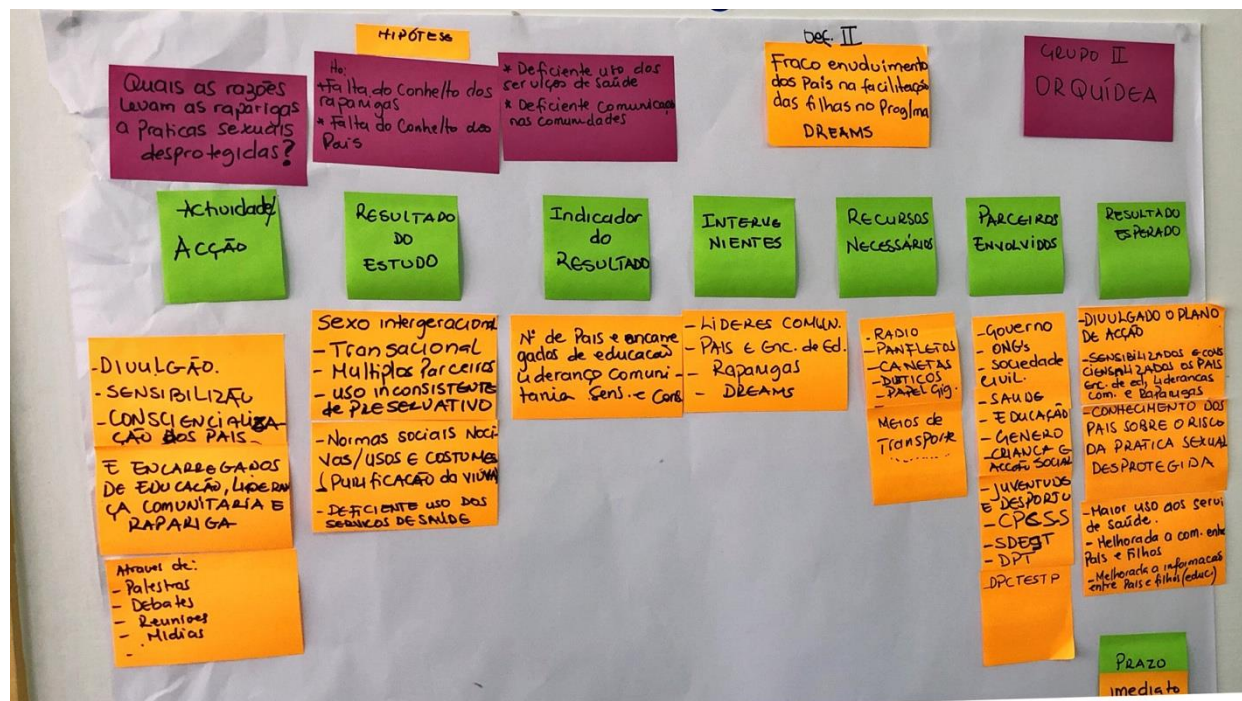 HIPÓTESE
Quais as razões
levam as raparigas
a Praticas sexuais
desprotegidas?
Ho:
*Falta do Conhe/to das
raparigas
* Falta do Conhe/to dos
Pais
* Deficiente uso dos
serviços de saúde
* Deficiente Comunicação
nas comunidades
Def. II
Fraco envolvimento
dos Pais na facilitação
das filhas no Prog/ma
DREAMS
GRUPO II
ORQUÍDEA
Actividade/
ACÇÃO
RESULTADO
DO
ESTUDO
Indicador
do
RESULTADO
INTERVE
NIENTES
RECURSOS
NECESSÁRIOS
PARCEIROS
ENVOLVIDOS
RESULTADO
ESPERADO
-DIVULGÃO.
- SENSIBILIZAÇÃO
-CONSCIENCIALIZA-
ÇÃO DOS PAIS
E ENCARREGADOS
DE EDUCAÇÃO, LIDERAN
ÇA COMUNITARIA E
RAPARIGA
Atraves de:
- Palestras
- Debates
- Reuniões
- Midias
-
Sexo intergeracional
- Transacional
- Multiplos Parceiros
- uso inconsistente
de PRESERVATIVO
-Normas sociais Noci
vas/usos E COSTUMES
(PURIFICAÇÃO da viúva)
-DEFICIENTE USO DOS
SERVICOS DE SAÚDE
Nº de Pais e encarre
gados de educação
Liderança Comuni-
tania Sens. e Cons
- LÍDERES COMUN.
- PAIS E Enc. de Ed.
- Raparigas
- DREAMS
- RADIO
- PANFLETOS
- CANETAS
- DISTICOS
- PAPEL Gig.
MEIOS de
Transporte
-Governo
- ONGs
- Sociedade
Civil.
- SAUDE
- EDUCAÇÃO
- GENERO
-CRIANÇA E
ACCÇÃO SOCIAL
-JUVENTUDE
E DESPORTO
- CPCSS
- SDEJT
- DPT
DPCTESTP
-DIVULGADO O PLANO
DE ACÇÃO
-SENSIBILIZADOS E CONS
CIENSALIZADOS OS PAIS
Enc. de ed, Liderancas
Com. e Raparigas
- CONHECIMENTO DOS
PAIS SOBRE O RISCO
DA PRATICA SEXUAL
DESPROTEGIDA
-Maior uso dos servi
de saúde.
- Melhorada a com. entre
Pais e Filhos
-Melhorada a informacao
entre Pais e filhos (educ)
PRAZO
imediato